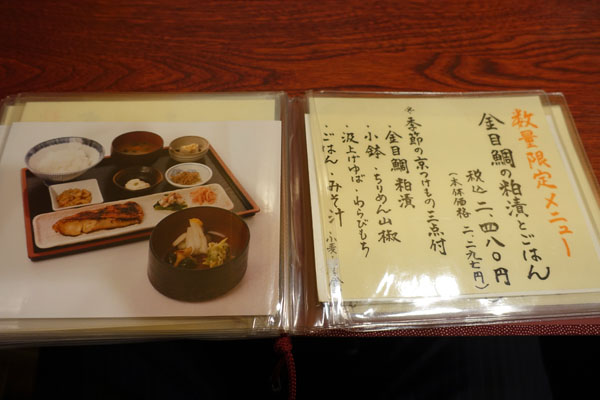 数量限定メニュー
金目鯛の粕漬とごはん
税込 二、四八〇円
(本体価格 二、二九七円)
*季節の京つけもの三点付
・金目鯛 粕漬
・小鉢・ちりめん山椒
・汲上げゆば・わらびもち
・ごはん・みそ汁
小麦・